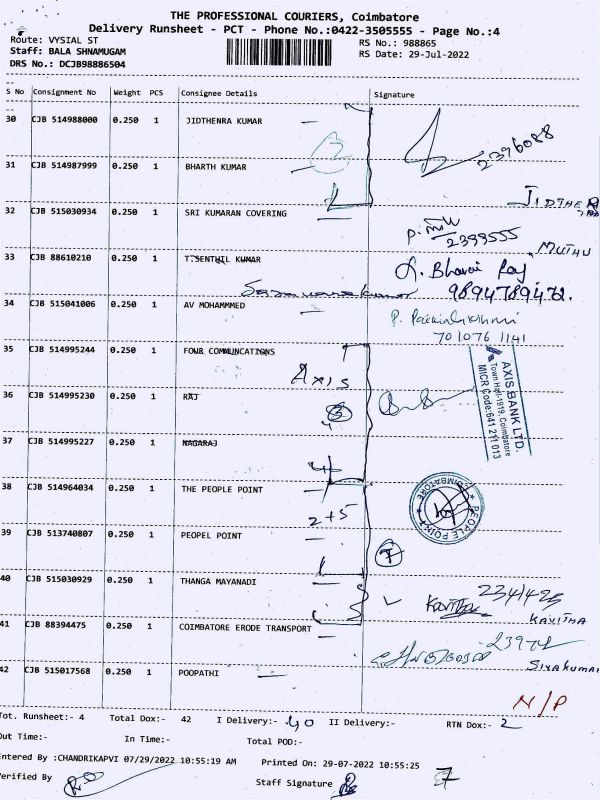 THE PROFESSIONAL COURIERS, Coimbatore
Delivery Runsheet - PCT - Phone No.:0422-3505555 - Page No.:4
Route: VYSIAL ST
RS No.: 988865
Staff: BALA SHNAMUGAM
RS Date: 29-Jul-2022
DRS No.: DCJB98886504
S No Consignment No Weight PCS Consignee Details Signature
30 CJB 514988000 0.250 1 JIDTHENRA KUMAR
2396088
31 CJB 514987999 0.250 1 BHARTH KUMAR
JIDTHER
32 CJB 515030934 0.250 1 SRI KUMARAN COVERING
2399555
MUTHU
33 CJB 88610210 0.250 1 T.SENTHIL KUMAR
Bhavai Raj
Saravanakumar 9894789472.
34 CJB 515041006 0.250 1 AV MOHAMMMED
701076 1141
35 CJB 514995244 0.250 1 FOUR COMMUNCATIONS
Axis
AXIS BANK LTD
Town Hall-1919, Coimbatore
MICR Code:641 211 013
36 CJB 514995230 0.250 1 RAJ
3
37 CJB 514995227 0.250 1 NAGARAJ
38 CJB 514964034 0.250 1 THE PEOPLE POINT
PEOPLE POINT
COIMBATORE
2+5
39 CJB 513740807 0.250 1 PEOPEL POINT
7
40 CJB 515030929 0.250 1 THANGA MAYANADI
Kavitha 2341425
KAVITHA
41 CJB 88394475 0.250 1 COIMBATORE ERODE TRANSPORT
Sivakumar
42 CJB 515017568 0.250 1 POOPATHI
N/P
Tot. Runsheet:- 4 Total Dox:- 42 I Delivery:- 40 II Delivery:- RTN Dox:- 2
Out Time:- In Time:- Total POD:-
Entered By :CHANDRIKAPVI 07/29/2022 10:55:19 AM Printed On: 29-07-2022 10:55:25
Verified By
Staff Signature
7